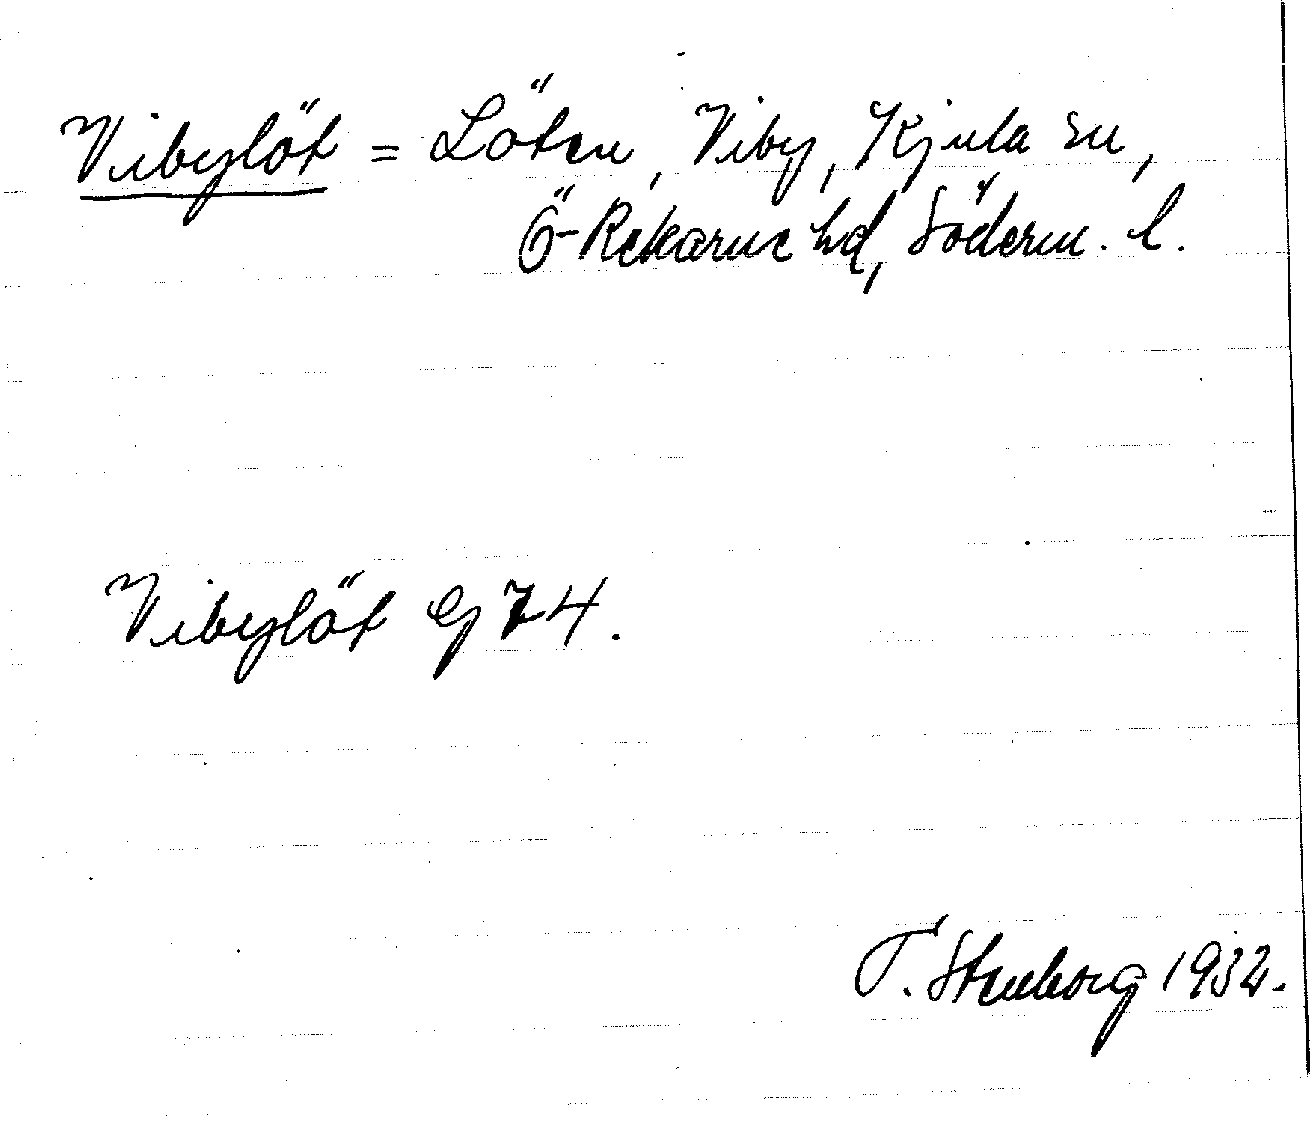 Vibylöt = Löten, Viby, Kjula sn,
Ö-Rekarne hd, Söderm. l.
Vibylöt G 74.
T. Stenborg 1932.